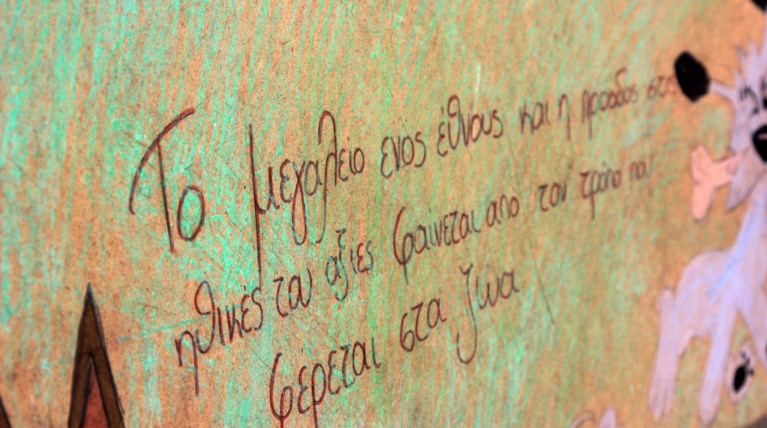 Το μεγαλειο ενος έθνους και η προοδος στις
ηθικές του αξιες φαινεται απο τον τρόπο που
φέρεται στα ζώα